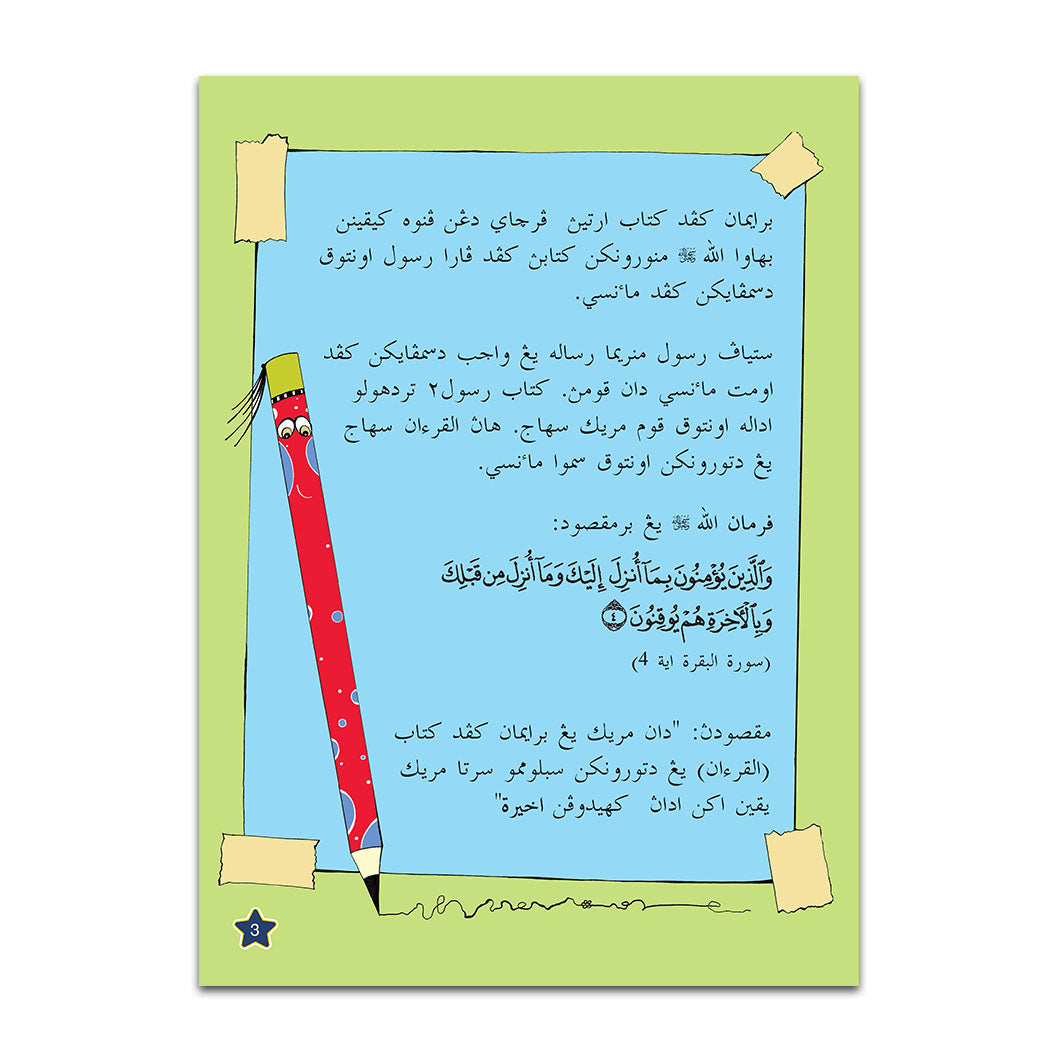 برايمان كڤد كتاب ارتيڽ ڤرچاي دڠن ڤنوه كيقينن
بهاوا الله ﷻ منورونكن كتابڽ كڤد ڤارا رسول اونتوق
دسمڤايكن كڤد ماءنسي.
ستياڤ رسول منريما رساله يڠ واجب دسمڤايكن كڤد
اومت ماءنسي دان قومڽ. كتاب رسول٢ تردهولو
اداله اونتوق قوم مريك سهاج. هاڽ القرءان سهاج
يڠ دتورونكن اونتوق سموا ماءنسي.
فرمان الله ﷻ يڠ برمقصود:
وَٱلَّذِينَ يُؤْمِنُونَ بِمَآ أُنزِلَ إِلَيْكَ وَمَآ أُنزِلَ مِن قَبْلِكَ
وَبِٱلْأَخِرَةِ هُمْ يُوقِنُونَ ٤
(سورة البقرة اية 4)
مقصودڽ: "دان مريك يڠ برايمان كڤد كتاب
(القرءان) يڠ دتورونكن سبلوممو سرتا مريك
يقين اكن اداڽ كهيدوڤن اخيرة"
3